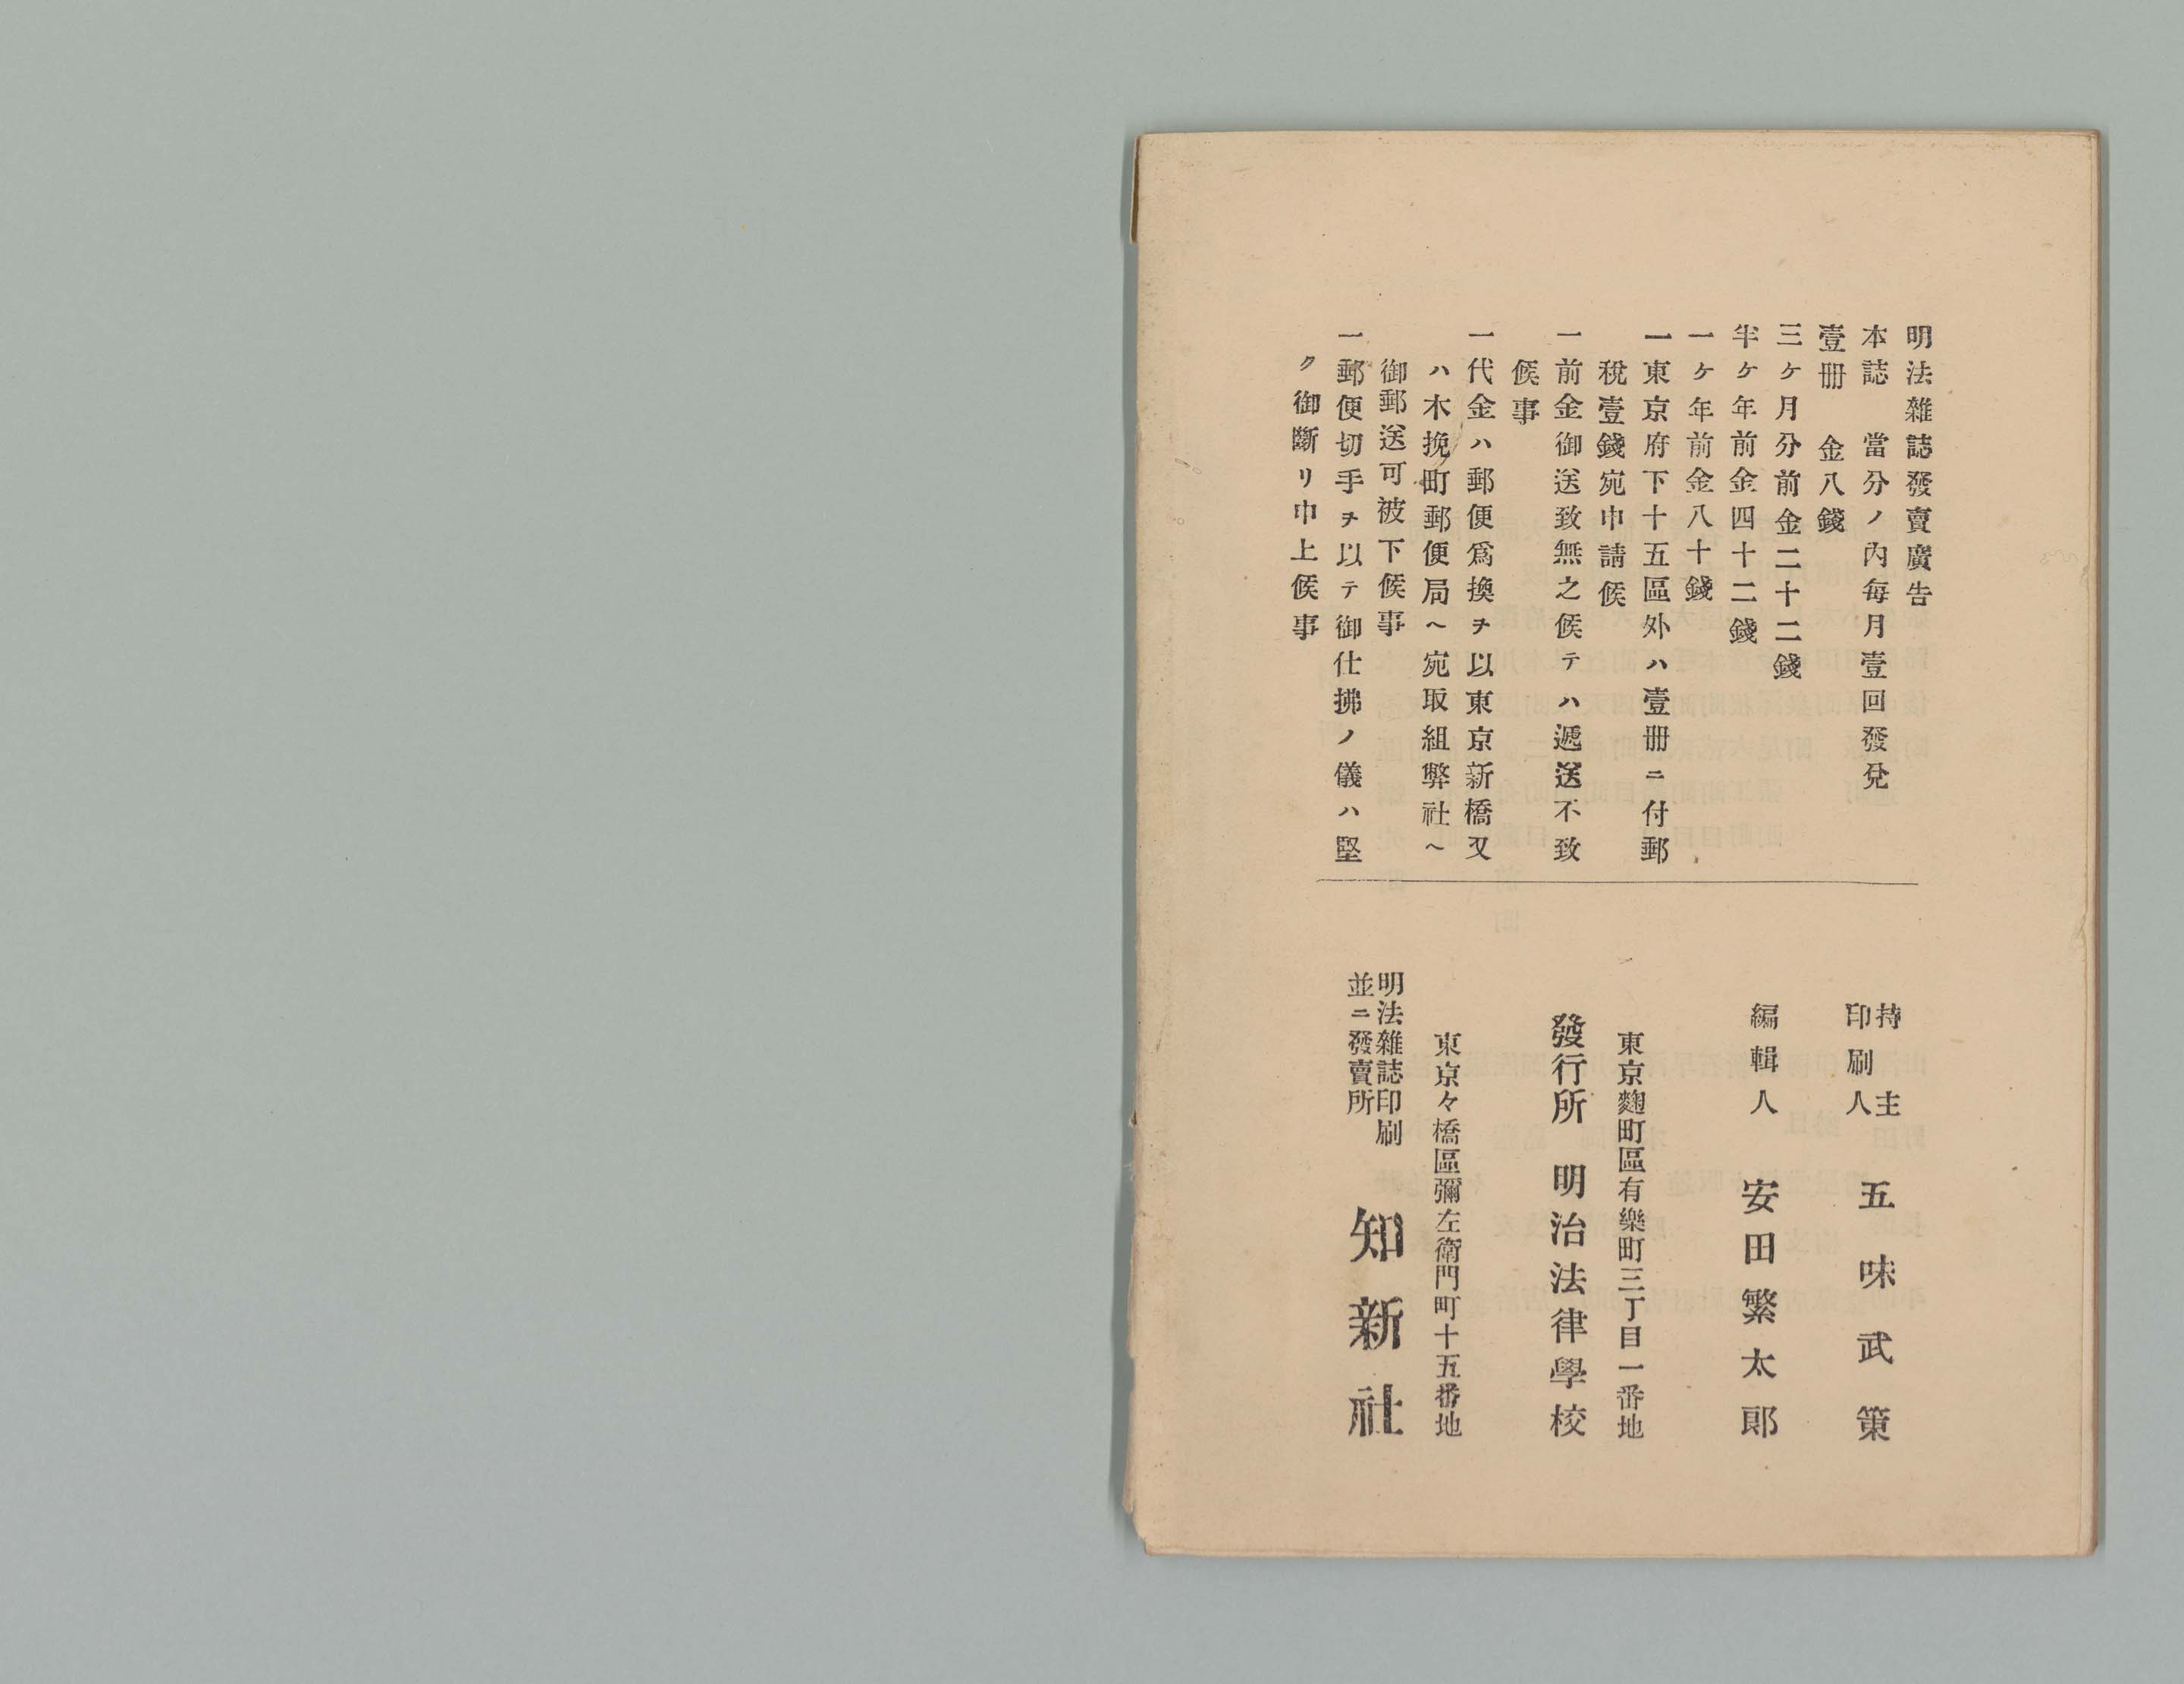 明法雜誌發賣廣告
本誌　當分ノ內每月壹回發兌
壹冊　金八錢
三ケ月分前金二十二錢
半ケ年前金四十二錢
一ケ年前金八十錢
一東京府下十五區外ハ壹冊ニ付郵
稅壹錢宛申請候
一前金御送致無之候テハ遞送不致
候事
一代金ハ郵便爲換ヲ以東京新橋又
ハ木挽町郵便局ヘ宛取組弊社ヘ
御郵送可被下候事
一郵便切手ヲ以テ御仕拂ノ儀ハ堅
ク御斷リ申上候事
持主
印刷人　五味武策
編輯人　安田繁太郎
東京麴町區有樂町三丁目一番地
發行所　明治法律學校
東京々橋區彌左衛門町十五番地
明法雜誌印刷
並ニ發賣所　知新社